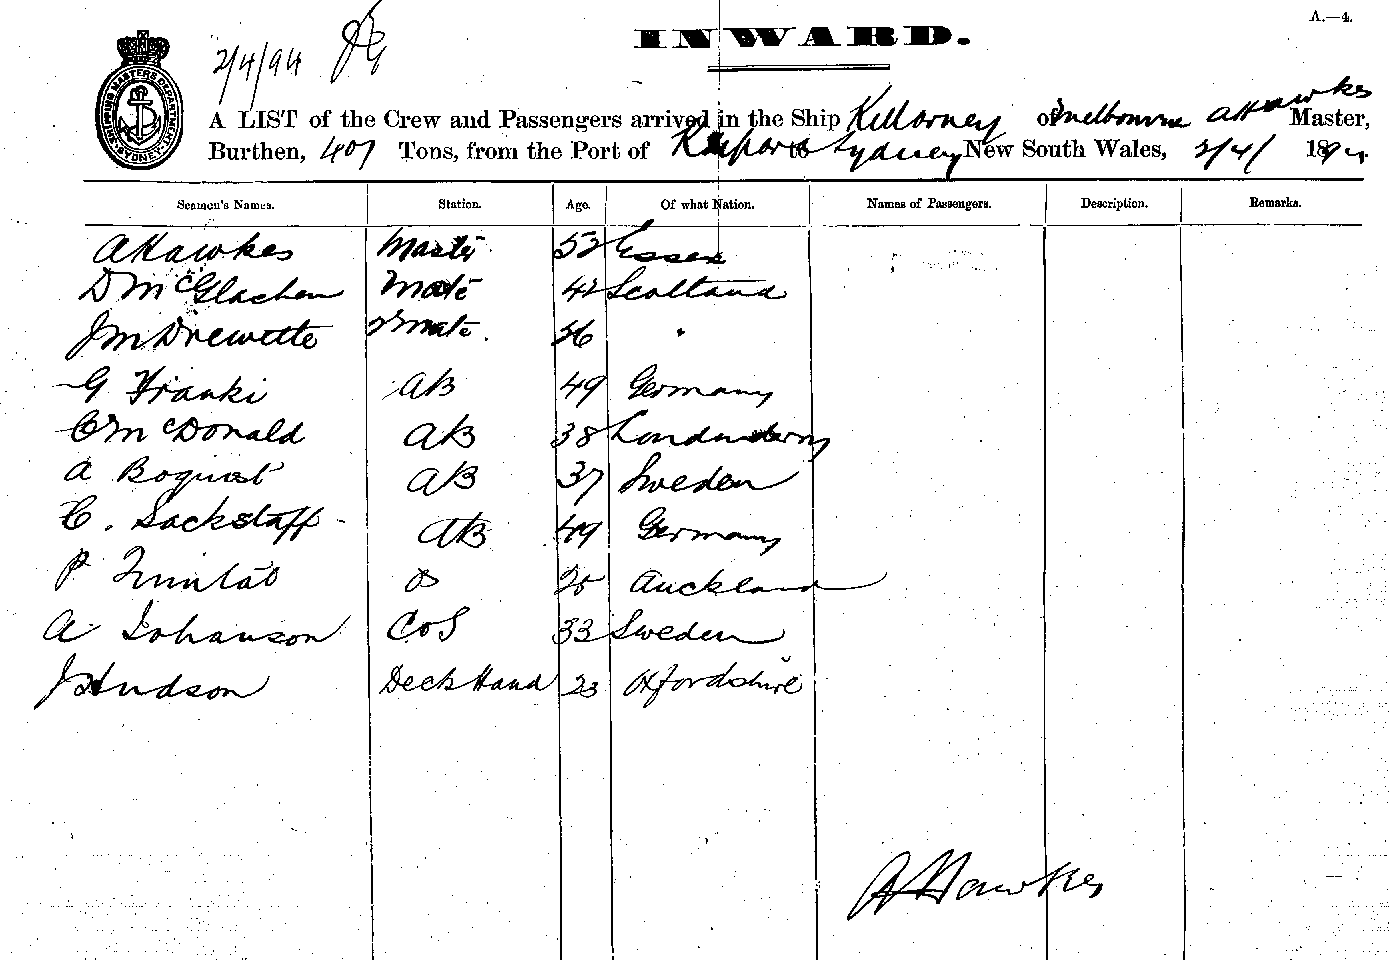 A.—4.
INWARD.
2/4/94
SHIPPING MASTERS DEPARTMENT SYDNEY
A LIST of the Crew and Passengers arrived in the Ship Killarney of Melbourne A Hawkes Master,
Burthen, 407 Tons, from the Port of Kaipara to Sydney New South Wales, 2/4/ 1894.
Seamen's Names. Station. Age. Of what Nation. Names of Passengers. Description. Remarks.
A Hawkes Master 52 Essex
D McGlachen Mate 42 Scotland
J M Drewette 2 Mate. 26 "
G Franki AB 49 Germany
C McDonald AB 38 Londonderry
A Boquist AB 37 Sweden
C. Sackstaff AB 49 Germany
P Auckland
A Johanson CoS 33 Sweden
J Hudson Deck Hand 23 Oxfordshire
A Hawkes